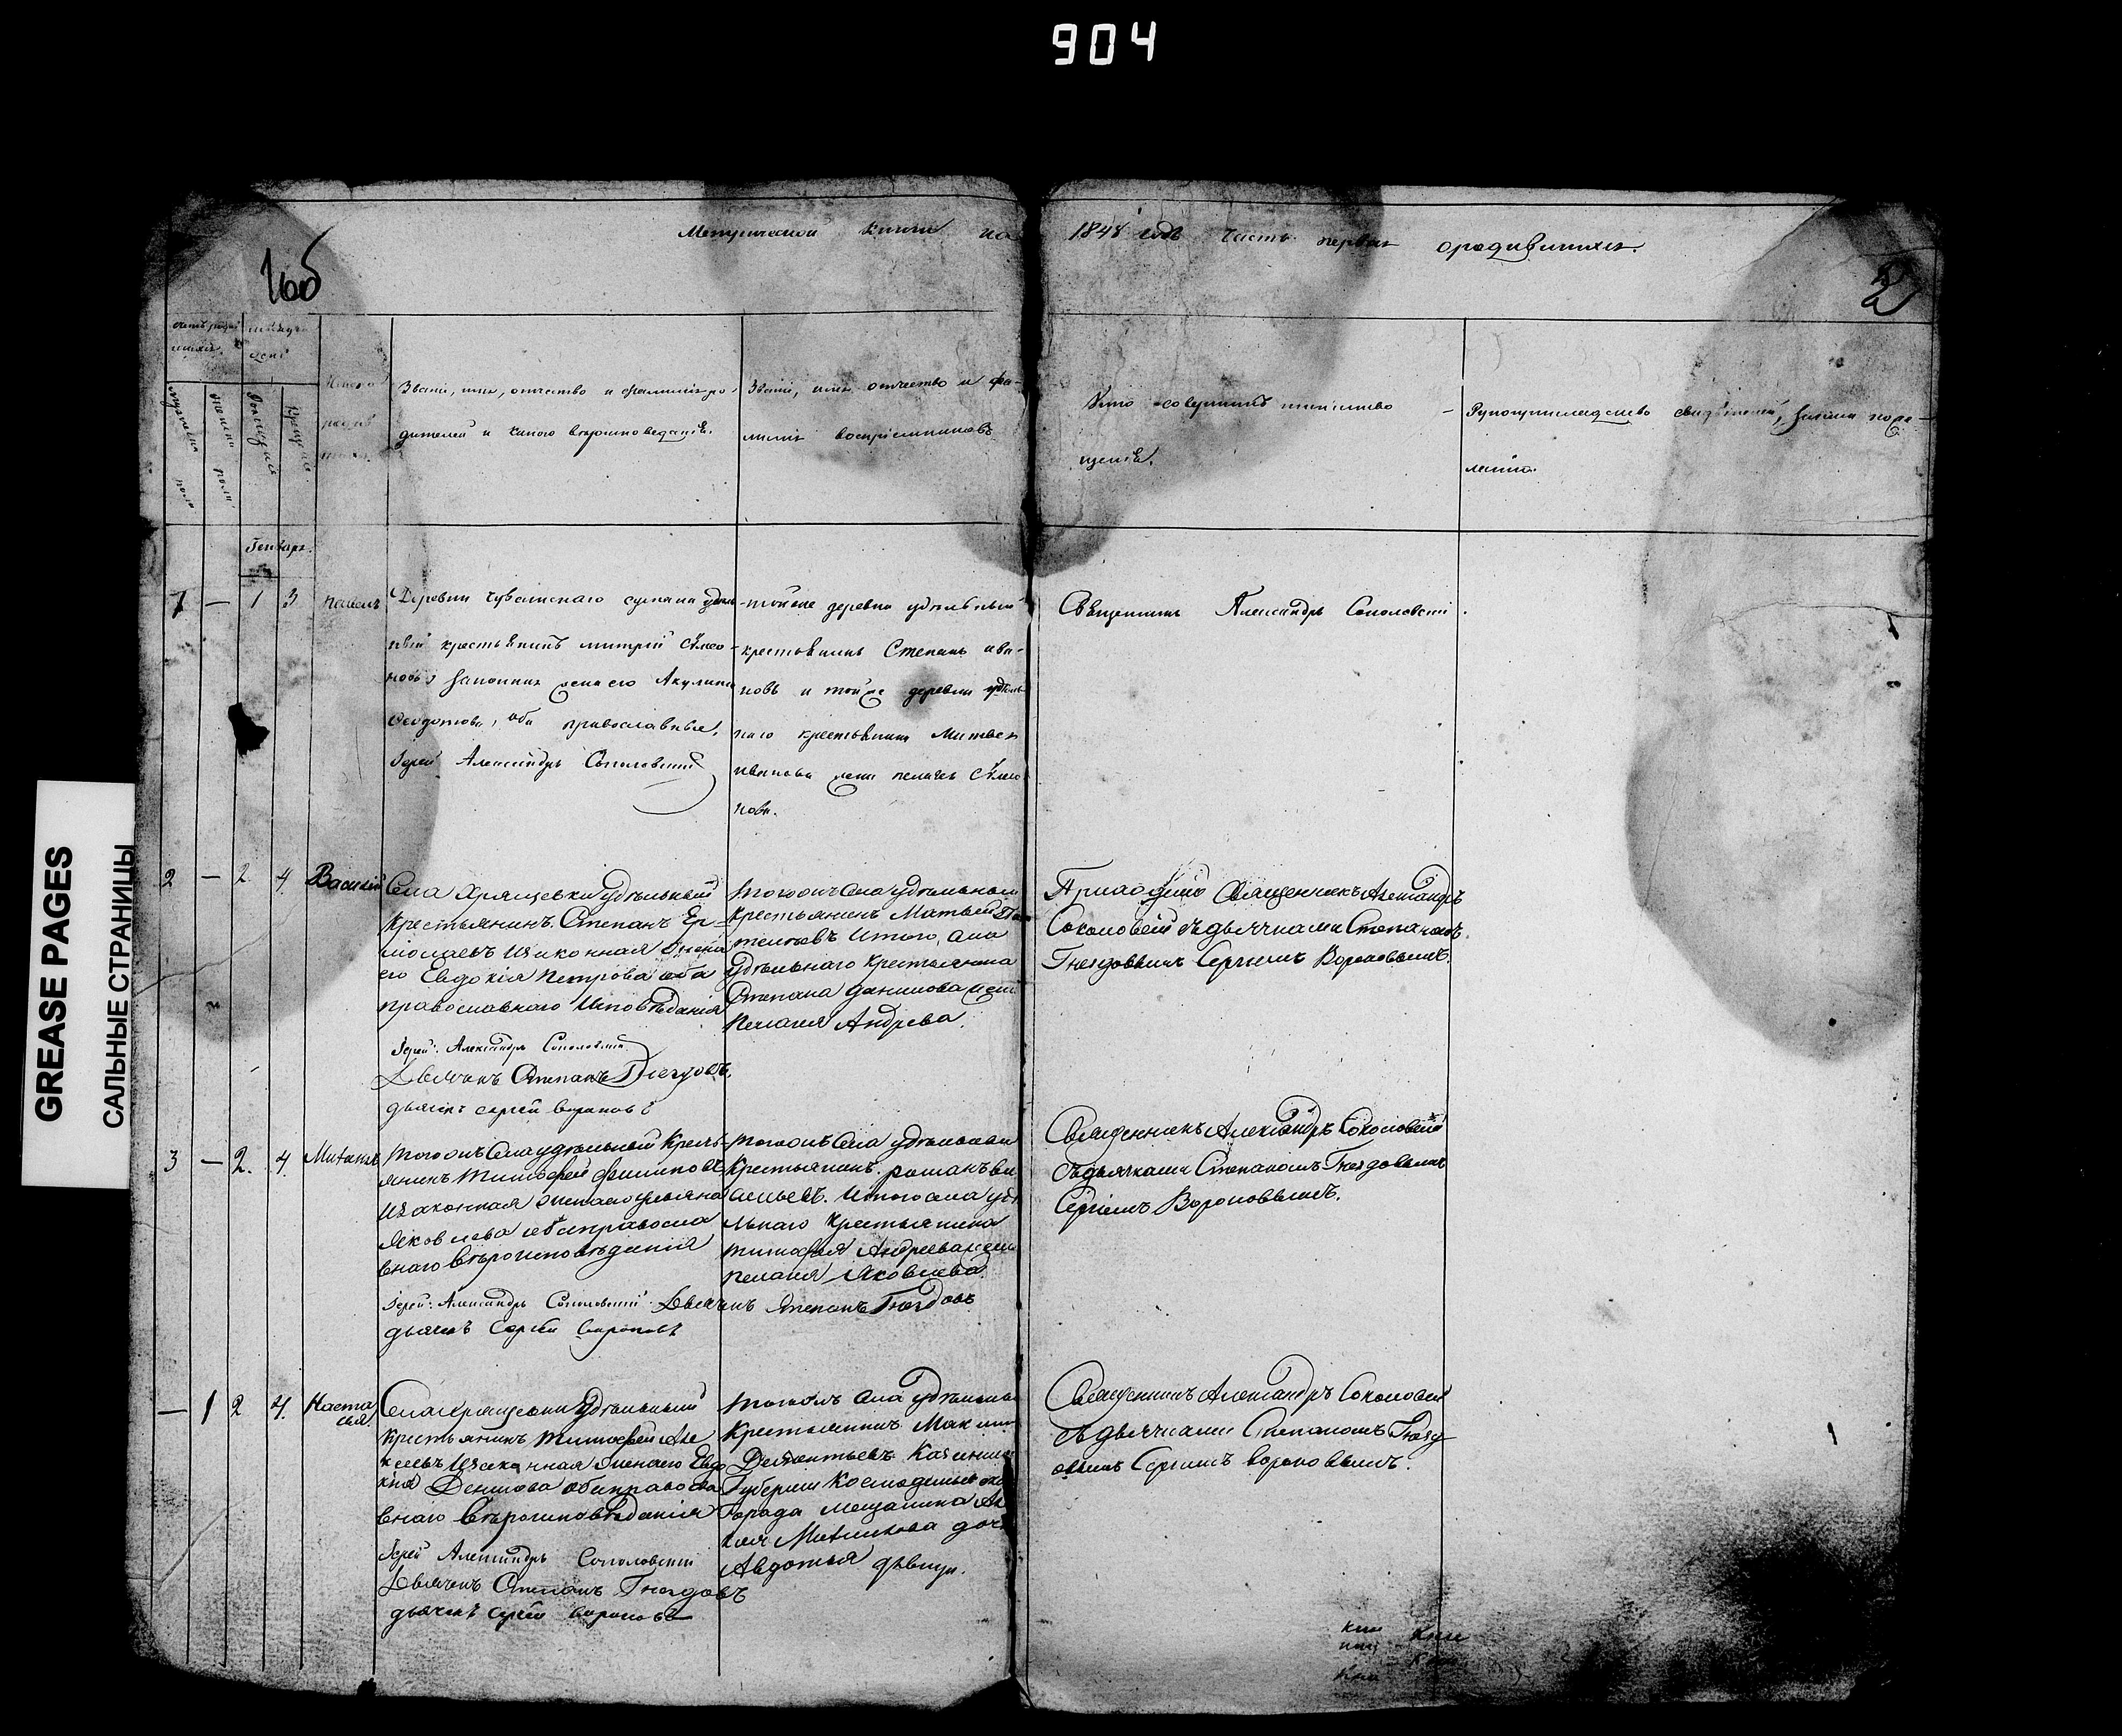 904
Метрической книги на 1848 годъ часть первая о родившихся.
2
Званiе, имя, отчество и фамилiя ро-
дителей и какого вѣроисповеданiя.
Званiе, имя отчество и фа-
милiя воспрiемниковъ
Кто совершалъ таинство
крещенiя.
Рукоприкладство свидѣтелей записи по же-
ланiю.
Генварь.
1 — 1 3 Павелъ
Деревни Чувашскаго сускана удѣль
ный крестьянинъ митрiй
законная жена его Акулина
Феодотова, оба православные,
Iерей Александръ Соколовскiй
тойже деревни удѣльный
крестьянинъ Степанъ ива-
новъ и тойже деревни удѣль
наго крестьянина Матвея
иванова жена пелагея
нова.
Священникъ Александръ Соколовскiй
2 — 2 4 Василiй
Села Хрящевки удѣльный
крестьянинъ Степанъ Ер-
молаевъ и законная жена
его Евдокiя Петрова оба
православнаго исповѣданiя
Iерей: Александръ Соколовскiй
Дьячекъ Степанъ Гнездовъ.
дьячекъ сергей вороновъ
тогожъ села удѣльный
крестьянинъ Матвей
и того села
удѣльнаго крестьянина
Степана данилова жена
пелагея Андрева.
Приходскiй Священникъ Александръ
Соколовскiй съ дьячками Степаномъ
Гнездовымъ Сергiемъ Вороновымъ.
3 — 2. 4
тогожъ села удѣльный кресть
янинъ тимофей филиповъ
и законная жена его ульяна
яковлева оба православ
внаго вѣроисповѣданiя
Iерей: Александръ Соколовскiй Дьячекъ Степанъ Гнездовъ
дьячекъ Сергей вороновъ
тогожъ села удѣльный
крестьянинъ. романъ ва
сильевъ. и того села удѣ
льнаго крестьянина
тимофея Андреева жена
пелагея Яковлева.
Священникъ Александръ Соколовскiй
съ дьячками Степаномъ Гнездовымъ
Сергiемъ Вороновымъ.
— 1 2 4. Наста
сья
Села хрящевки удѣльный
крестьянинъ тимофей Але
ксевъ и законная жена его Евдо
кия Денисова оба правосла
внаго вѣроисповѣданiя
Iерей Александръ Соколовскiй
Дьячекъ Степанъ Гнездовъ
дьячекъ сергей вороновъ
тогожъ села удѣльный
крестьянинъ Максим
Дементьевъ Казанской
Губернiи
города мещанина
дочь
Авдотья дѣвица.
Священникъ Александръ Соколовскiй
съ дьячками Степаномъ Гнезд
овымъ Сергiемъ вороновымъ.
GREASE PAGES
САЛЬНЫЕ СТРАНИЦЫ